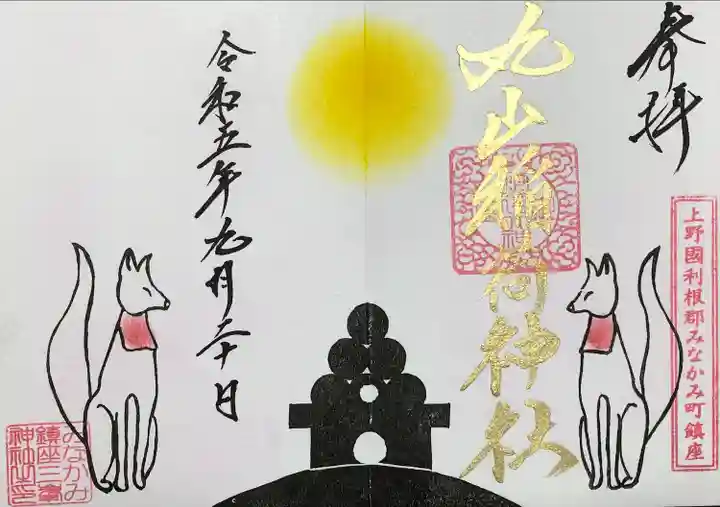 奉拝
上野國利根郡みなかみ町鎮座
丸山稲荷神社
令和五年九月二十日
みなかみ
鎮座三峯
神社之印